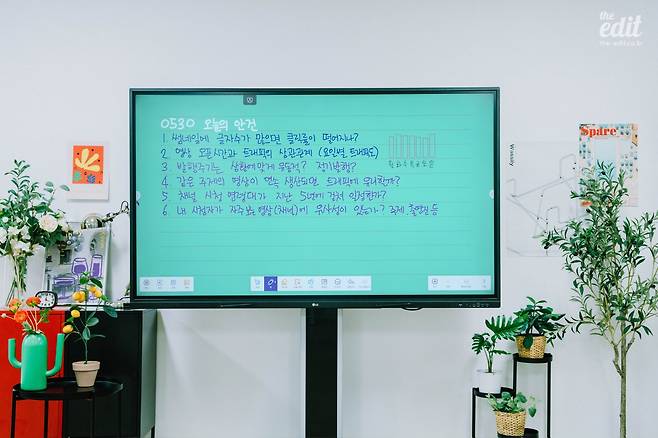 the
edit
the-edit.co.kr
0530 오늘의 안건
1. 썸네일에 글자수가 많으면 클릭률이 떨어지나?
2. 영상 오픈시간과 트래픽의 상관관계 (요일별 트래픽도)
3. 발행주기는 상황에맞게 유동적? 정기발행?
월화수목금토일
4. 같은 주제의 영상이 연속 생산되면 트래픽에 유리할까?
5. 채널 시청 연령대가 지난 5년에 걸쳐 일정할까?
6. 내 시청자가 자주 보는 영상(채널)에 유사성이 있는가? 주제, 촬영 등
LG
Spare
Wassily